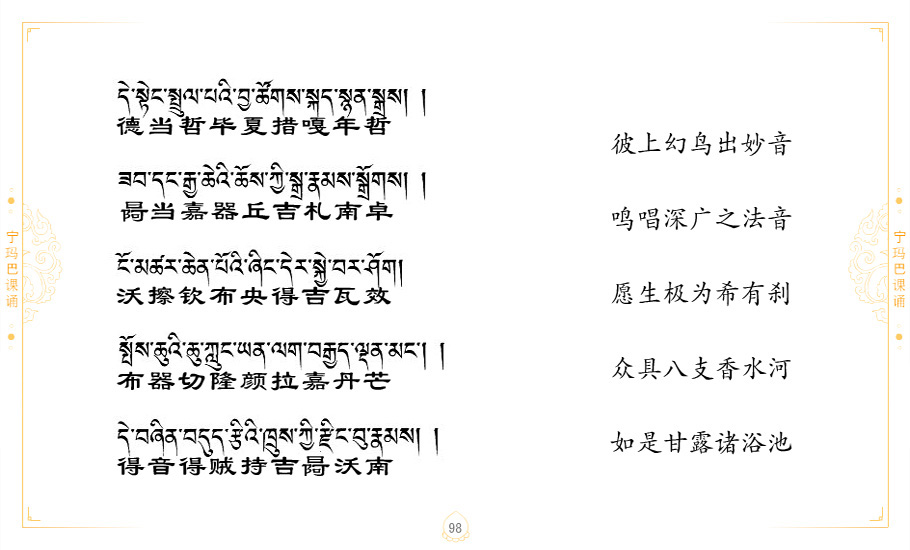 དེ་སྟེང་སྤྲུལ་པའི་བྱ་ཚོགས་སྐད་སྙན་སྒྲས། །
德当哲毕夏措嘎年哲
ཟབ་དང་རྒྱ་ཆེའི་ཆོས་ཀྱི་སྒྲ་རྣམས་སྒྲོགས། །
曷当嘉器丘吉札南卓
ངོ་མཚར་ཆེན་པོའི་ཞིང་དེར་སྐྱེ་བར་ཤོག།
沃擦钦布央得吉瓦效
སྤོས་ཆུའི་ཆུ་ཀླུང་ཡན་ལག་བརྒྱད་ལྡན་མང་། །
布器切隆颜拉嘉丹芒
དེ་བཞིན་བདུད་རྩིའི་ཁྲུས་ཀྱི་རྫིང་བུ་རྣམས། །
得音得贼持吉曷沃南
彼上幻鸟出妙音
鸣唱深广之法音
愿生极为希有刹
众具八支香水河
如是甘露诸浴池
宁玛巴课诵
宁玛巴课诵
98